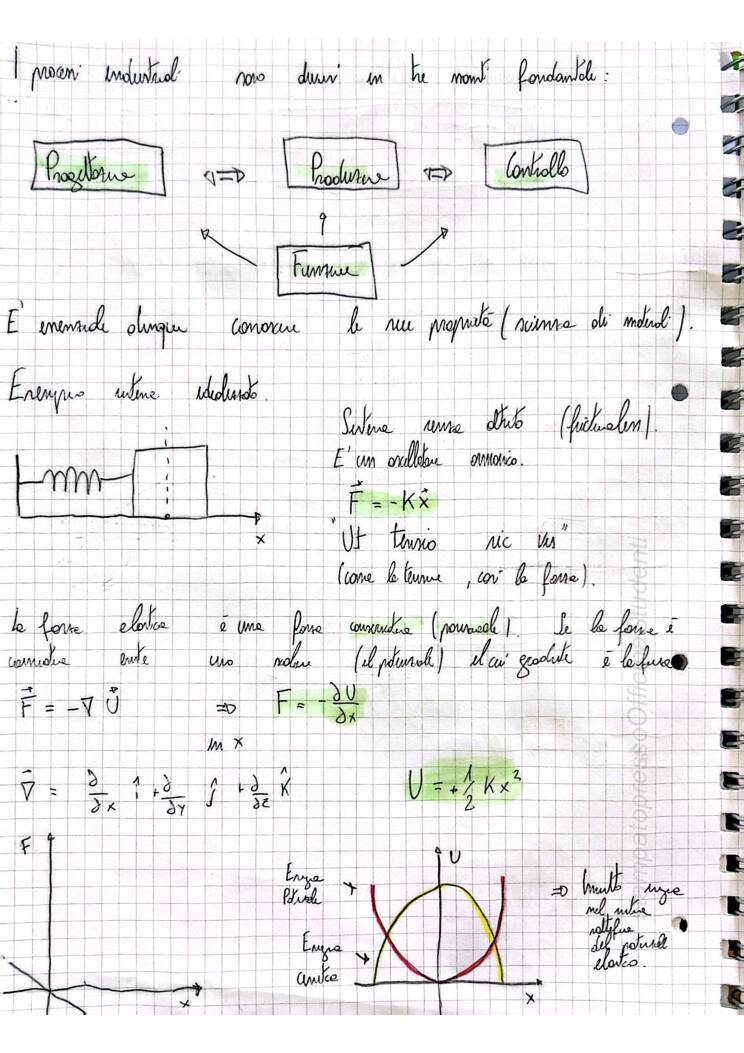 I processi industriali sono divisi in tre momenti fondamentali:
Progettazione ⇔ Produzione ⇔ Controllo
Funzione
E' essenziale dunque conoscere le sue proprietà (scienza dei materiali).
Esempio sistema idealizzato.
Sistema senza attrito (frictionless).
E' un oscillatore armonico.
F = -Kx
"Ut tensio sic vis"
(come la tensione, così la forza).
x
la forza elastica è una forza conservativa (posizionale). Se la forza è
conservativa esiste uno scalare (il potenziale) il cui gradiente è la forza
F = -∇ U ⇒ F = -∂U/∂x
in x
∇ = ∂/∂x î + ∂/∂y ĵ + ∂/∂z K̂
U = + 1/2 Kx²
F
x
U
Energia
Potenziale
Energia
cinetica
x
⇒ energia
nel sistema
del potenziale
elastico.